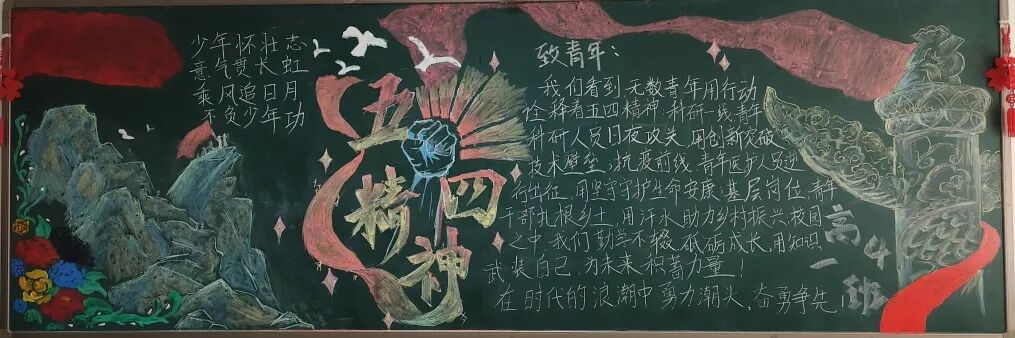 少年怀壮志
意气贯长虹
乘风追日月
不负少年功
五四
精神
致青年：
我们看到无数青年用行动
诠释着五四精神 科研一线青年
科研人员日夜攻关，用创新突破
技术壁垒；抗疫前线，青年医护人员逆
行出征，用坚守守护生命安康；基层岗位，青年
干部扎根乡土，用汗水助力乡村振兴；校园
之中，我们勤学不辍，砥砺成长，用知识
武装自己，为未来积蓄力量！
在时代的浪潮中勇力潮头、奋勇争先！
高一4班